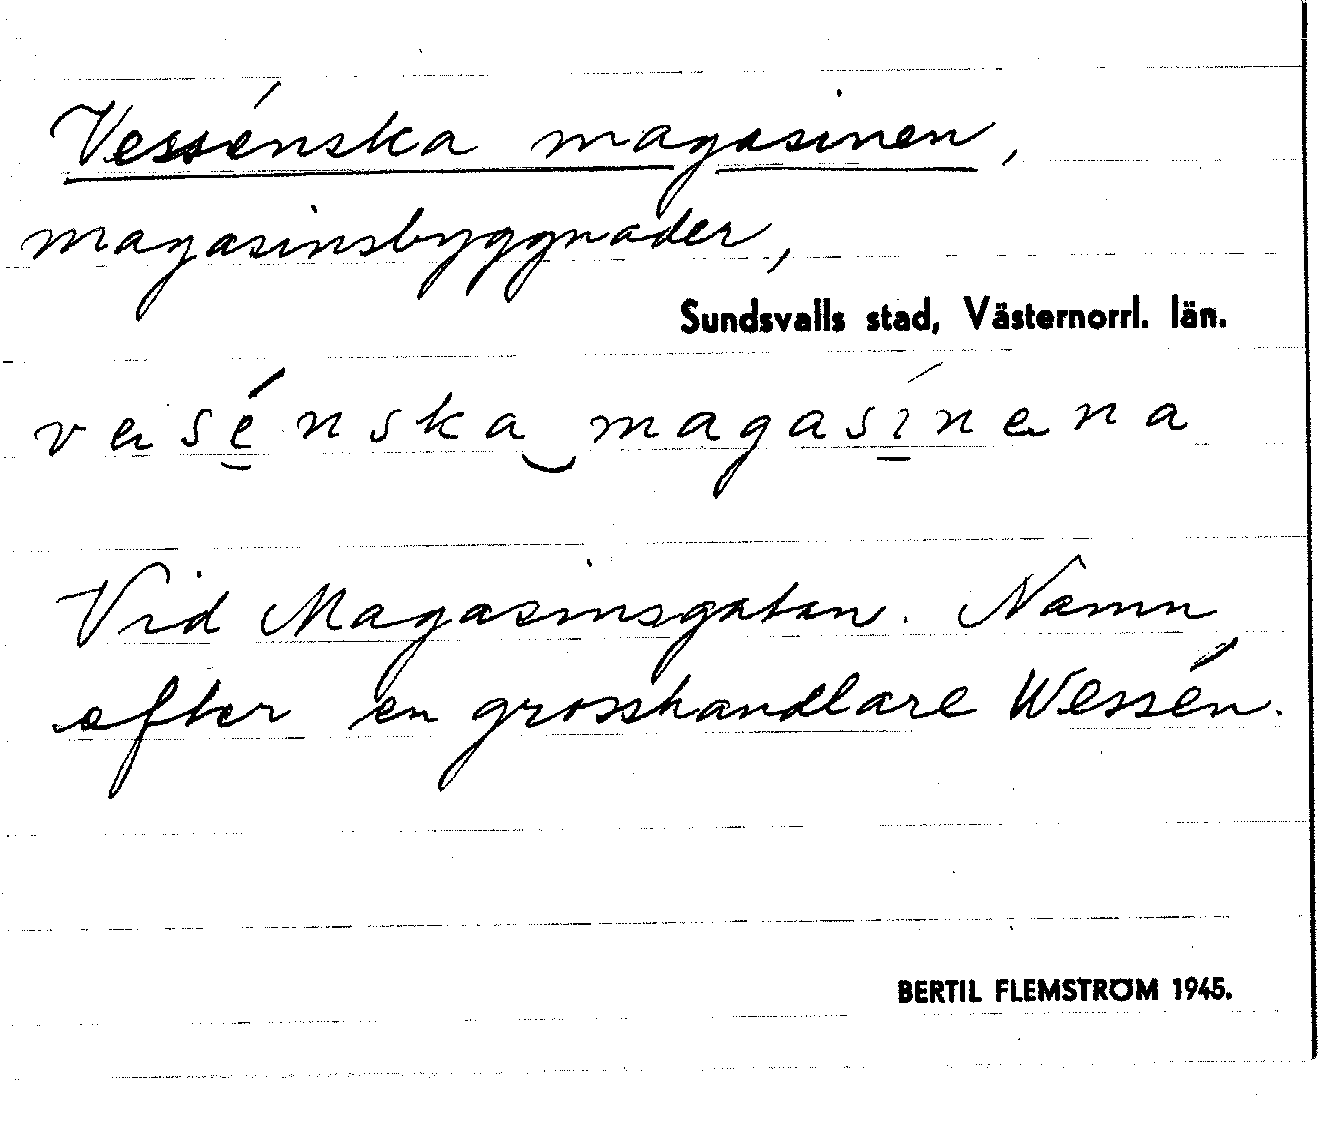 Vessénska magasinen,
magasinsbyggnader,
Sundsvalls stad, Västernorrl. län.
vesénska magasínena
Vid Magasinsgatan. Namn
efter en grosshandlare Wessén.
BERTIL FLEMSTRÖM 1945.